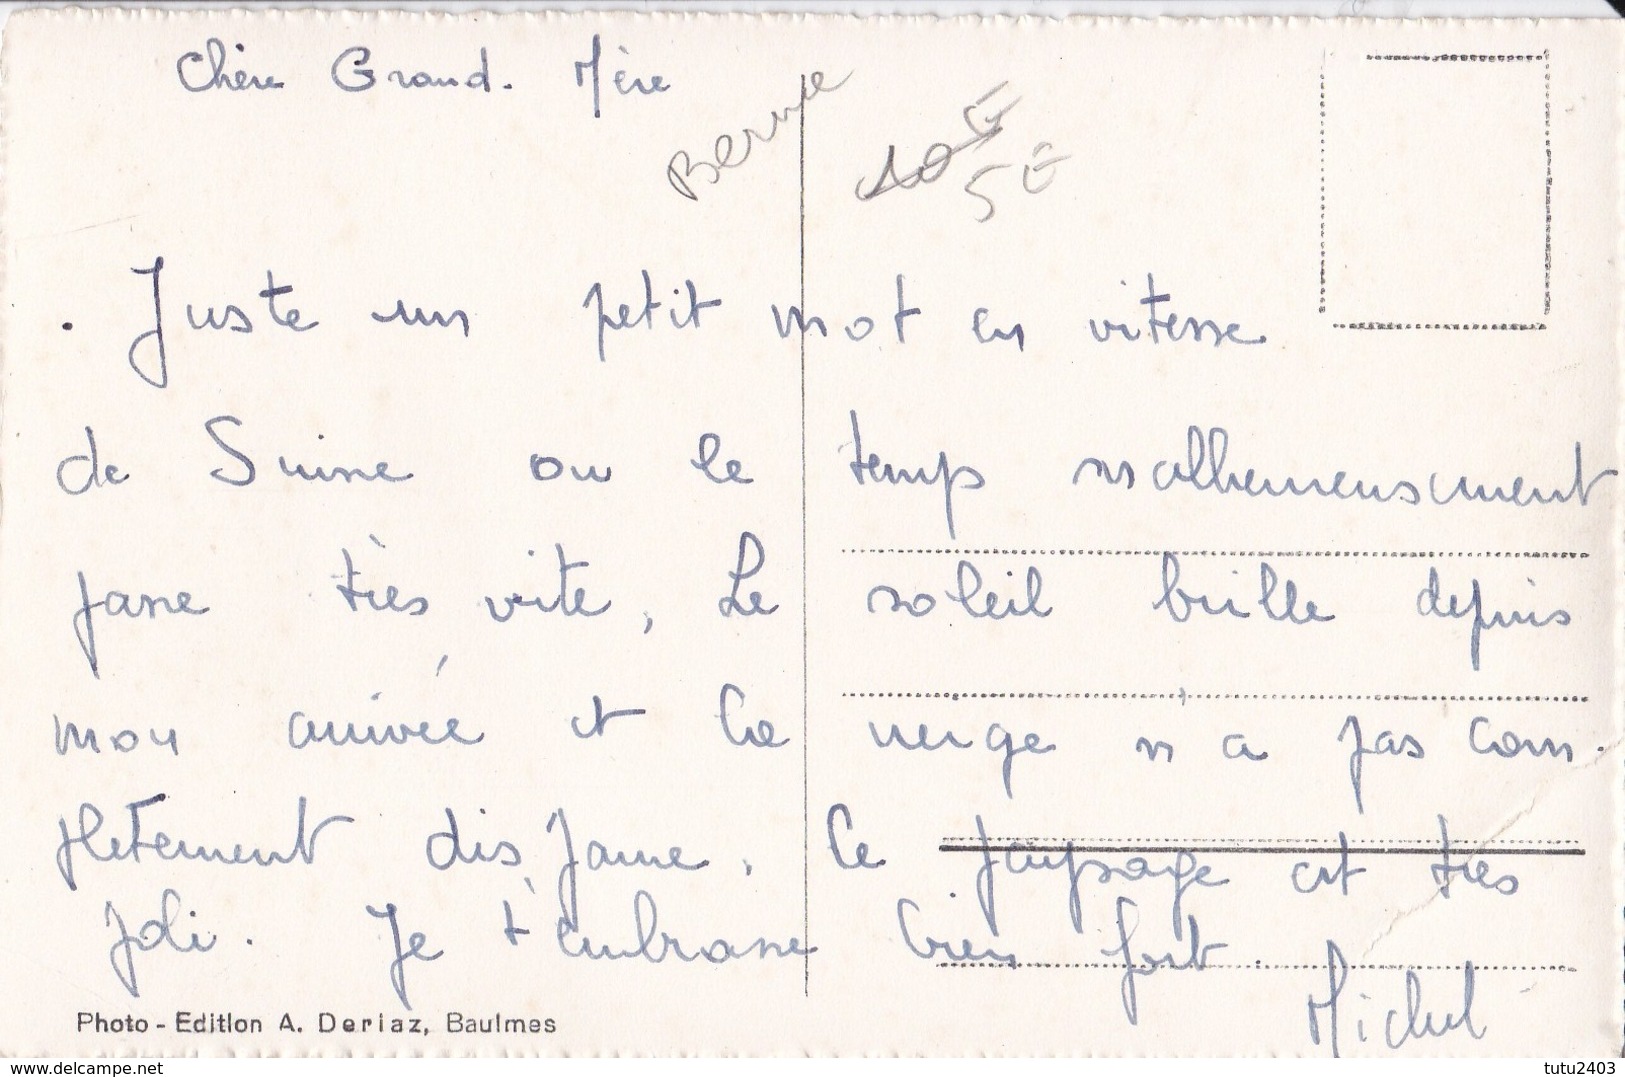 Chère Grand. Mère
Berne
10 €
5 €
. Juste un petit mot en vitesse
de Suisse ou le temps malheureusement
passe très vite, Le soleil brille depuis
mon arrivée et la neige n a pas com-
pletement disparue, le paysage est très
joli. Je t'embrasse bien fort.
Michel
Photo - Edition A. Deriaz, Baulmes
www.delcampe.net
tutu2403